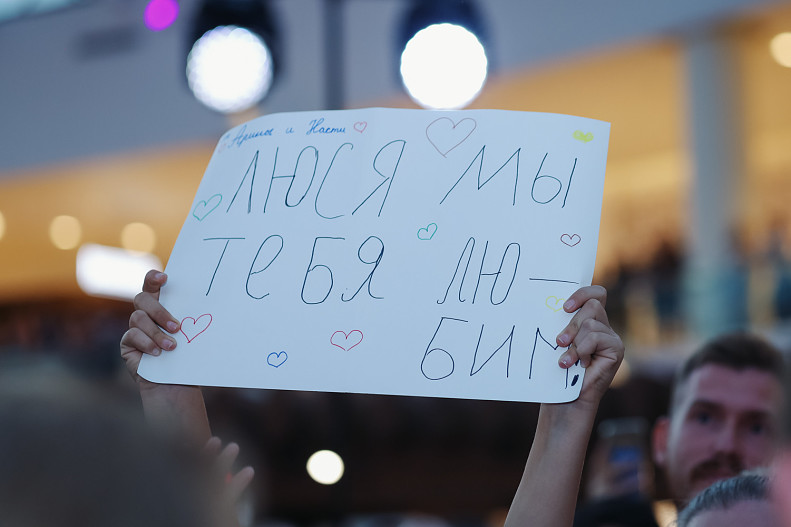 Арины и Насти
ЛЮСЯ МЫ
ТЕБЯ ЛЮ-
БИМ!